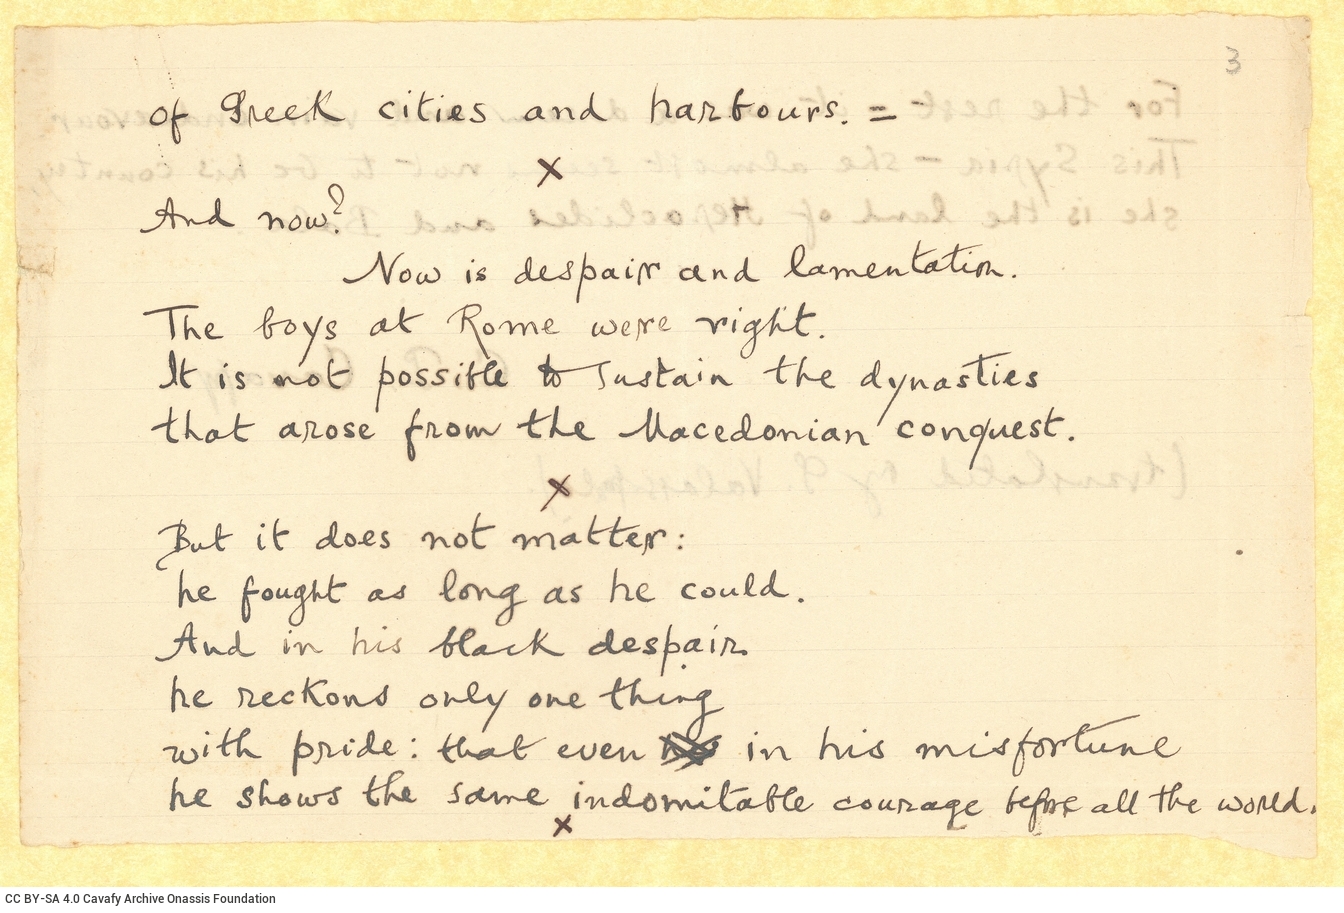 3
of Greek cities and harbours. =
x
And now?
Now is despair and lamentation.
The boys at Rome were right.
It is not possible to sustain the dynasties
that arose from the Macedonian conquest.
x
But it does not matter:
he fought as long as he could.
And in his black despair
he reckons only one thing
with pride: that even in his misfortune
he shows the same indomitable courage before all the world.
x
CC BY-SA 4.0 Cavafy Archive Onassis Foundation